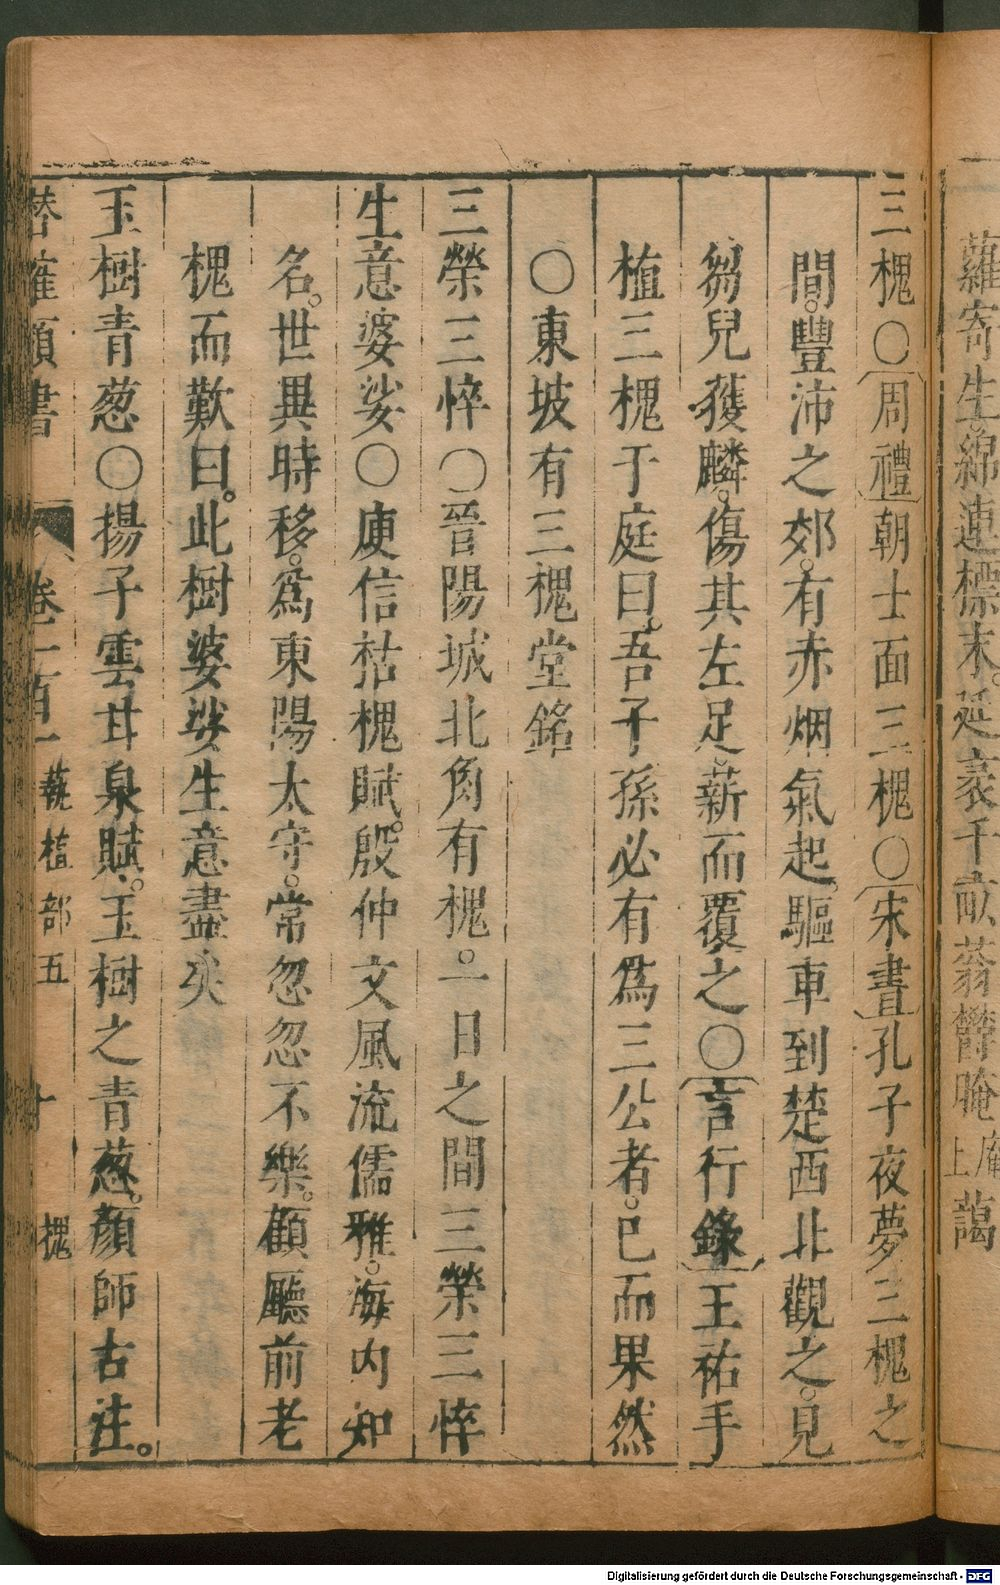 蘿寄生綿連標末。延袤千畝蓊欝晻庵上藹
三槐○周禮朝士面三槐○宋書孔子夜夢三槐之
間。豐沛之郊。有赤烟氣起。驅車到楚西北觀之。見
芻兒獲麟。傷其左足。薪而覆之○言行錄王祐手
植三槐于庭曰。吾子孫必有為三公者。已而果然
○東坡有三槐堂銘
三榮三悴○晉陽城北角有槐。一日之間三榮三悴
生意婆娑○庾信枯槐賦。殷仲文風流儒雅。海內知
名。世異時移。為東陽太守。常忽忽不樂。顧廳前老
槐而歎曰。此樹婆娑生意盡矣
玉樹青葱○揚子雲甘泉賦。玉樹之青葱。顏師古註。
潛確類書 卷一百一 蓺植部五 十 槐
Digitalisierung gefördert durch die Deutsche Forschungsgemeinschaft - DFG